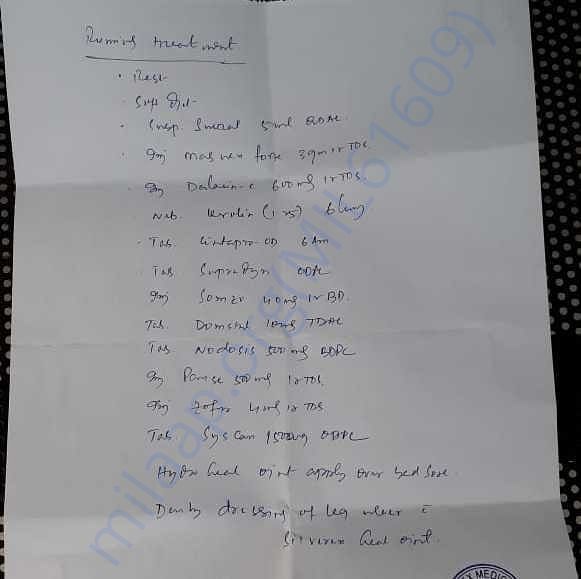 Running treatment
• Rest
• Soft diet
• Susp. 5ml
• Inj Magnex forte 3gm IV TDS
• Inj Dalacin-C 600mg IV TDS
• Neb. 6
• Tab. OD 6 Am
Tab Supradyn ODPC
Inj Somzo 40mg IV BD.
Tab. Domstal 10mg TDAC
Tab Nodosis 500mg BDPC
Inj 500mg IV TDS.
Inj Zofer 4mg IV TDS
Tab. Syscan 150mg ODPC
Hydroheal oint apply over bed sore.
dressing of leg ulcer c̄
heal oint.
milaap.org(MIL61609)
MEDIC